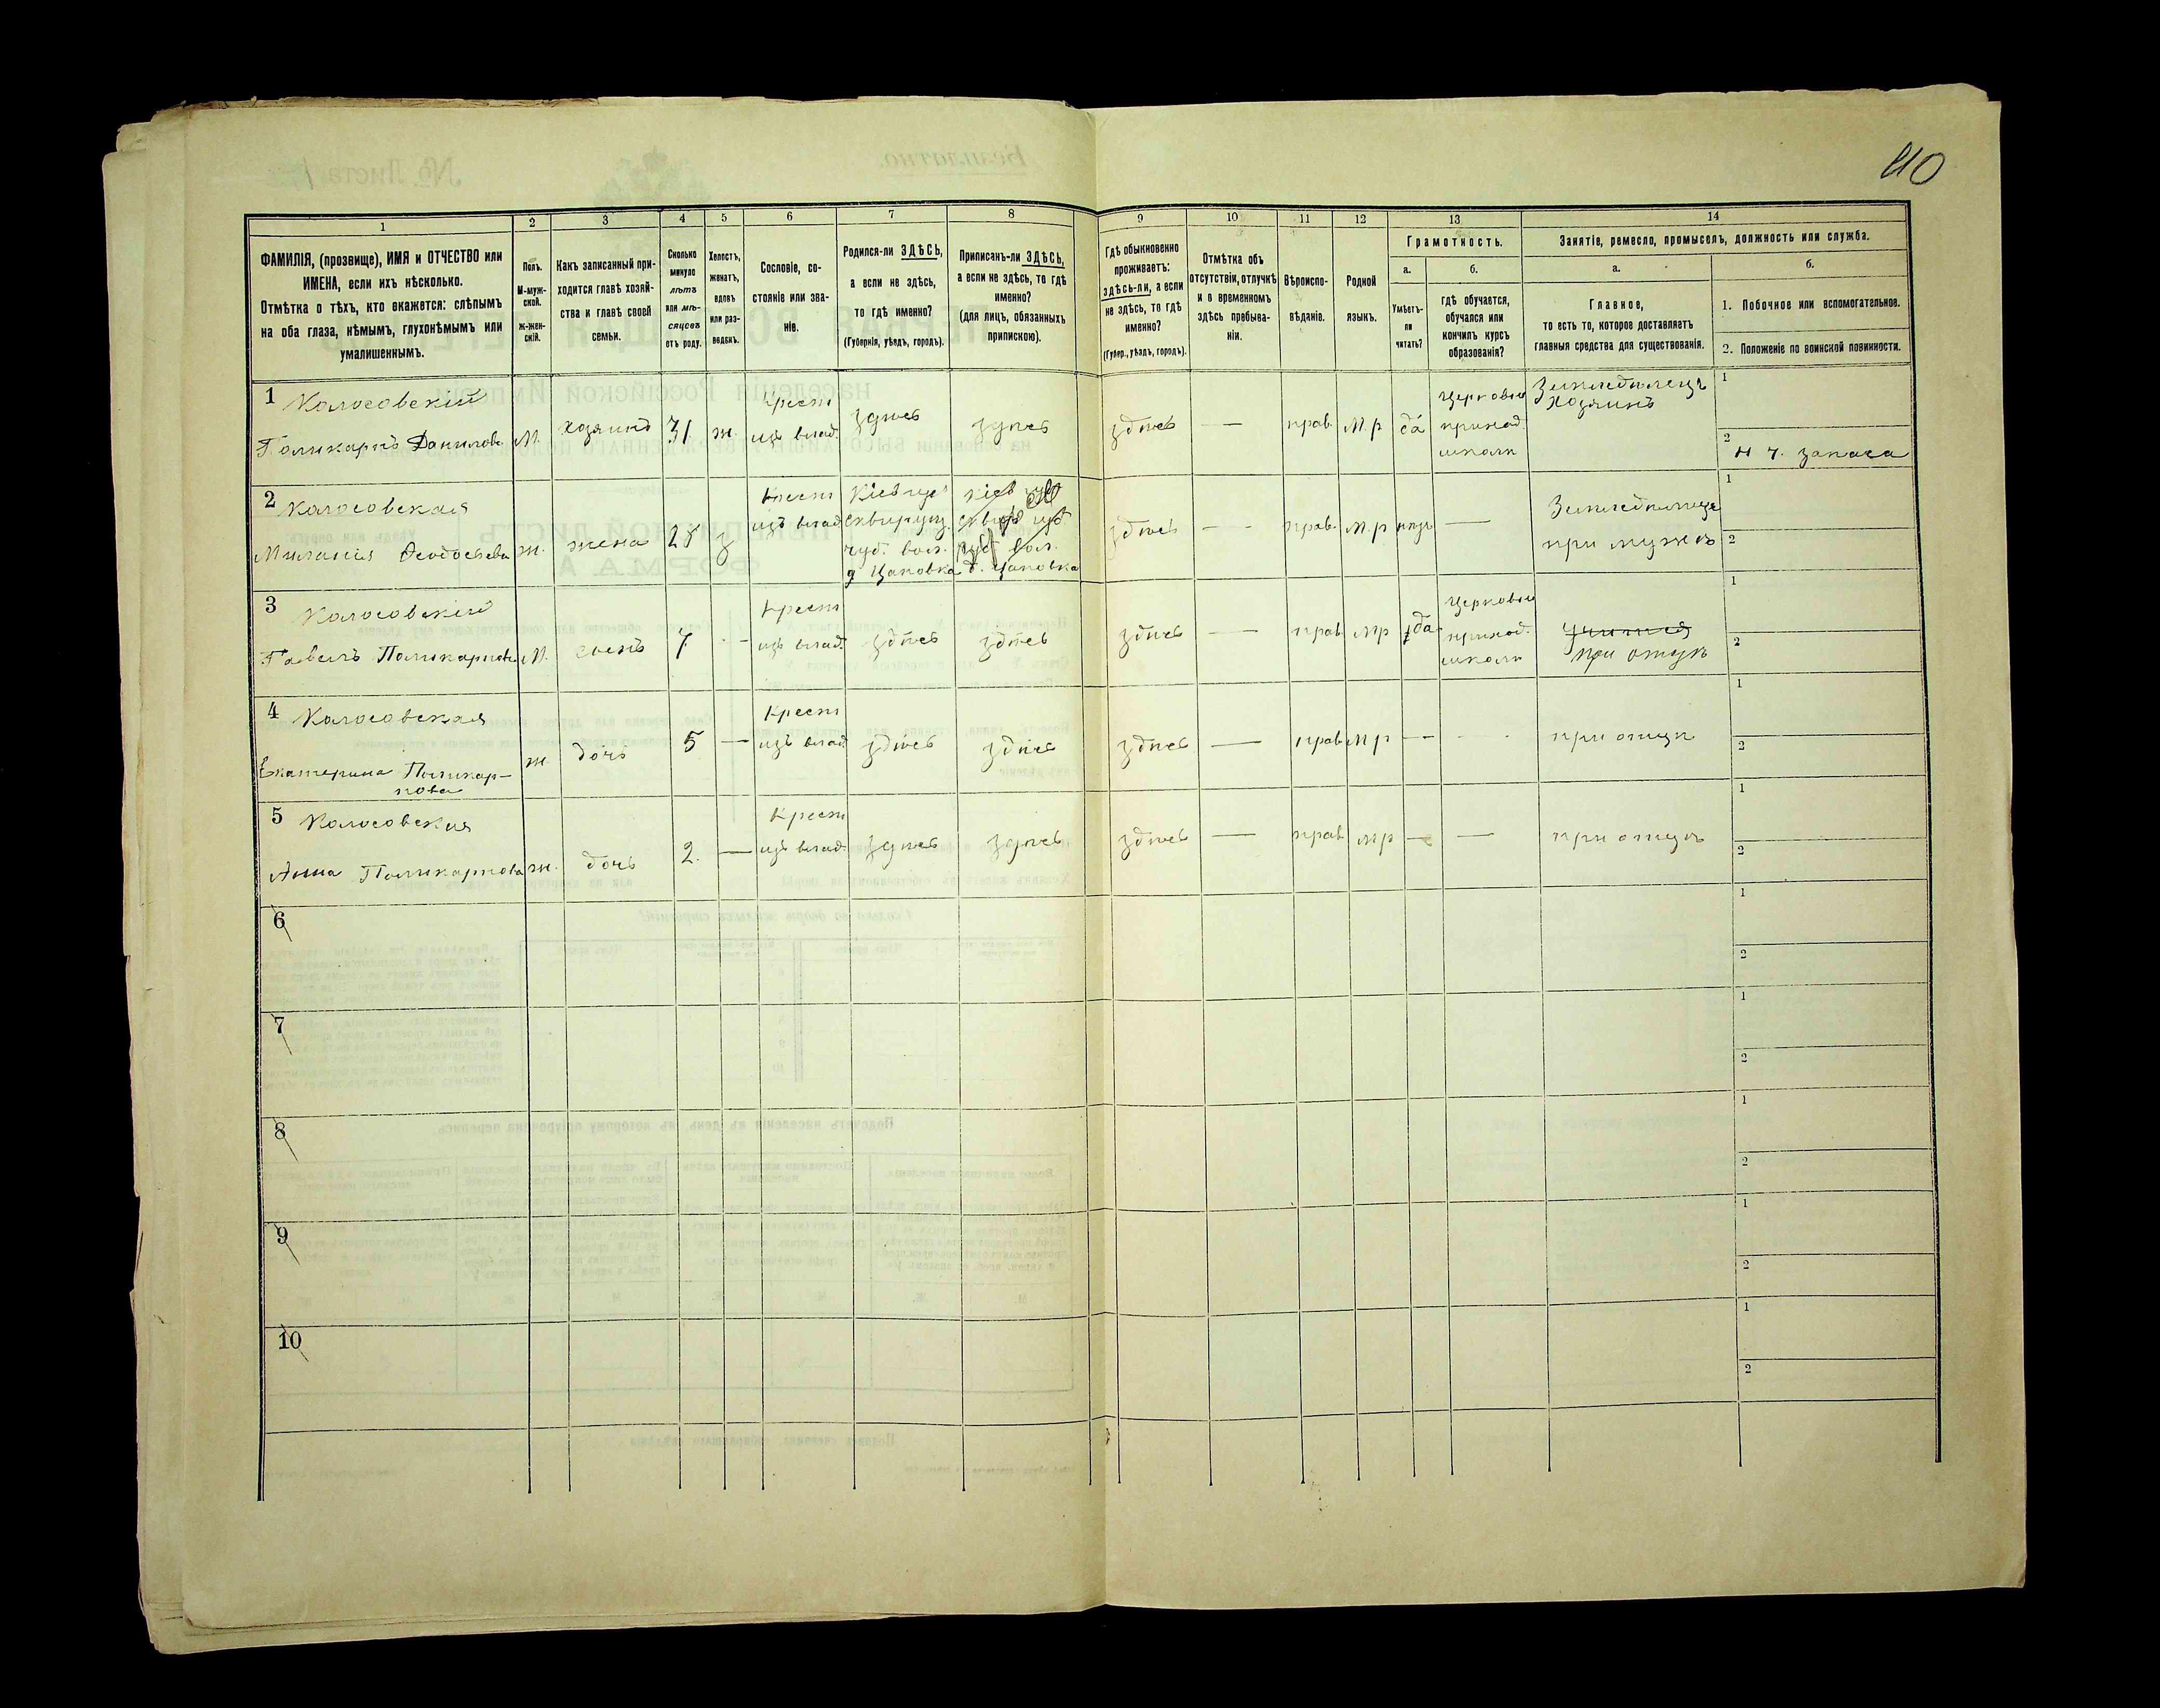 410
1 2 3 4 5 6 7 8 9 10 11 12 13 14
ФАМИЛІЯ, (прозвище), ИМЯ и ОТЧЕСТВО или
ИМЕНА, если ихъ нѣсколько.
Отмѣтка о тѣхъ, кто окажется: слѣпымъ
на оба глаза, нѣмымъ, глухонѣмымъ или
умалишеннымъ.
Полъ.
М-муж-
ской.
Ж-жен-
скій.
Какъ записанный при-
ходится главѣ хозяй-
ства и главѣ своей
семьи.
Сколько
минуло
лѣтъ
или мѣ-
сяцевъ
отъ роду.
Холостъ,
женатъ,
вдовъ
или раз-
веденъ.
Сословіе, со-
стояніе или зва-
ніе.
Родился-ли ЗДѢСЬ,
а если не здѣсь,
то гдѣ именно?
(Губернія, уѣздъ, городъ).
Приписанъ-ли ЗДѢСЬ,
а если не здѣсь, то гдѣ
именно?
(для лицъ, обязанныхъ
припискою).
Гдѣ обыкновенно
проживаетъ:
здѣсь-ли, а если
не здѣсь, то гдѣ
именно?
(Губер., уѣздъ, городъ).
Отмѣтка объ
отсутствіи, отлучкѣ
и о временномъ
здѣсь пребыва-
ніи.
Вѣроиспо-
вѣданіе.
Родной
языкъ.
Грамотность.
а.
Умѣетъ-
ли
читать?
б.
гдѣ обучается,
обучался или
кончилъ курсъ
образованія?
Занятіе, ремесло, промыселъ, должность или служба.
а.
Главное,
то есть то, которое доставляетъ
главныя средства для существованія.
б.
1. Побочное или вспомогательное.
2. Положеніе по воинской повинности.
1 Колосовскій
Поликарпъ Данилов М. хозяинъ 31 ж. Крест изъ влад. здѣсь здѣсь здѣсь — прав М.р да Церковно приход. школи Земледѣлецъ Хозяинъ
1
2 н ч. запаса
2 Колосовская
Миланія Феодосьева ж. жена 28 з Крест изъ влад Кіев губ Сквир уѣз. чуб. вол. д Цаповка Кіев губ Сквир уѣз. чуб вол. д. Цаповка здѣсь — прав. М.р нѣтъ — Земледѣлецъ при мужѣ
1
2
3 Колосовскій
Павелъ Поликарпов М. сынъ 7. - Крест изъ влад. здѣсь здѣсь здѣсь — прав мр да Церковно приход. школи Учится при отцѣ
1
2
4 Колосовская
Екатерина Поликар-
пова ж дочь 5 — Крест изъ влад здѣсь здѣсь здѣсь — прав мр — - при отцѣ
1
2
5 Колосовская
Анна Поликарпова ж. дочь 2. — Крест изъ влад. здѣсь здѣсь здѣсь — прав мр — — при отцѣ
1
2
6
1
2
7
1
2
8
1
2
9
1
2
10
1
2